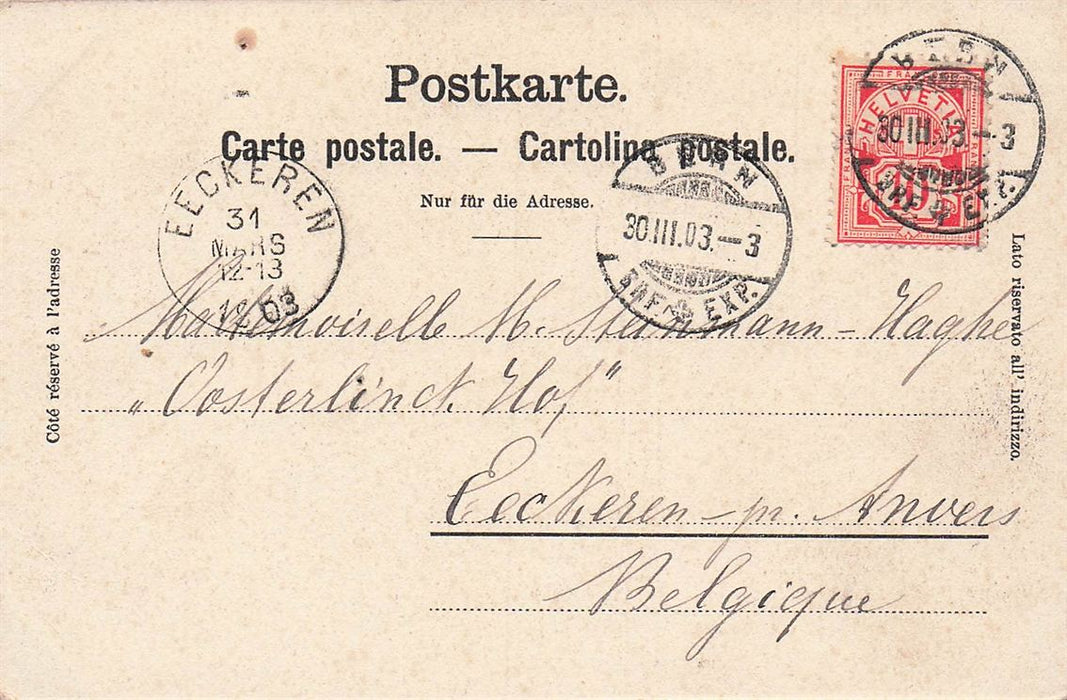 Postkarte.
Carte postale. — Cartolina postale.
Nur für die Adresse.
FRANCO
HELVETIA
10
BERN
30.III.03.–3
BRF. EXP.
BERN
30.III.03.–3
BRF. EXP.
EECKEREN
31
MARS
12-13
1903
Côté réservé à l'adresse
Lato riservato all' indirizzo.
Mademoiselle M. Steinmann-Haghe
„Oosterlinck Hof"
Eeckeren-pr. Anvers
Belgique